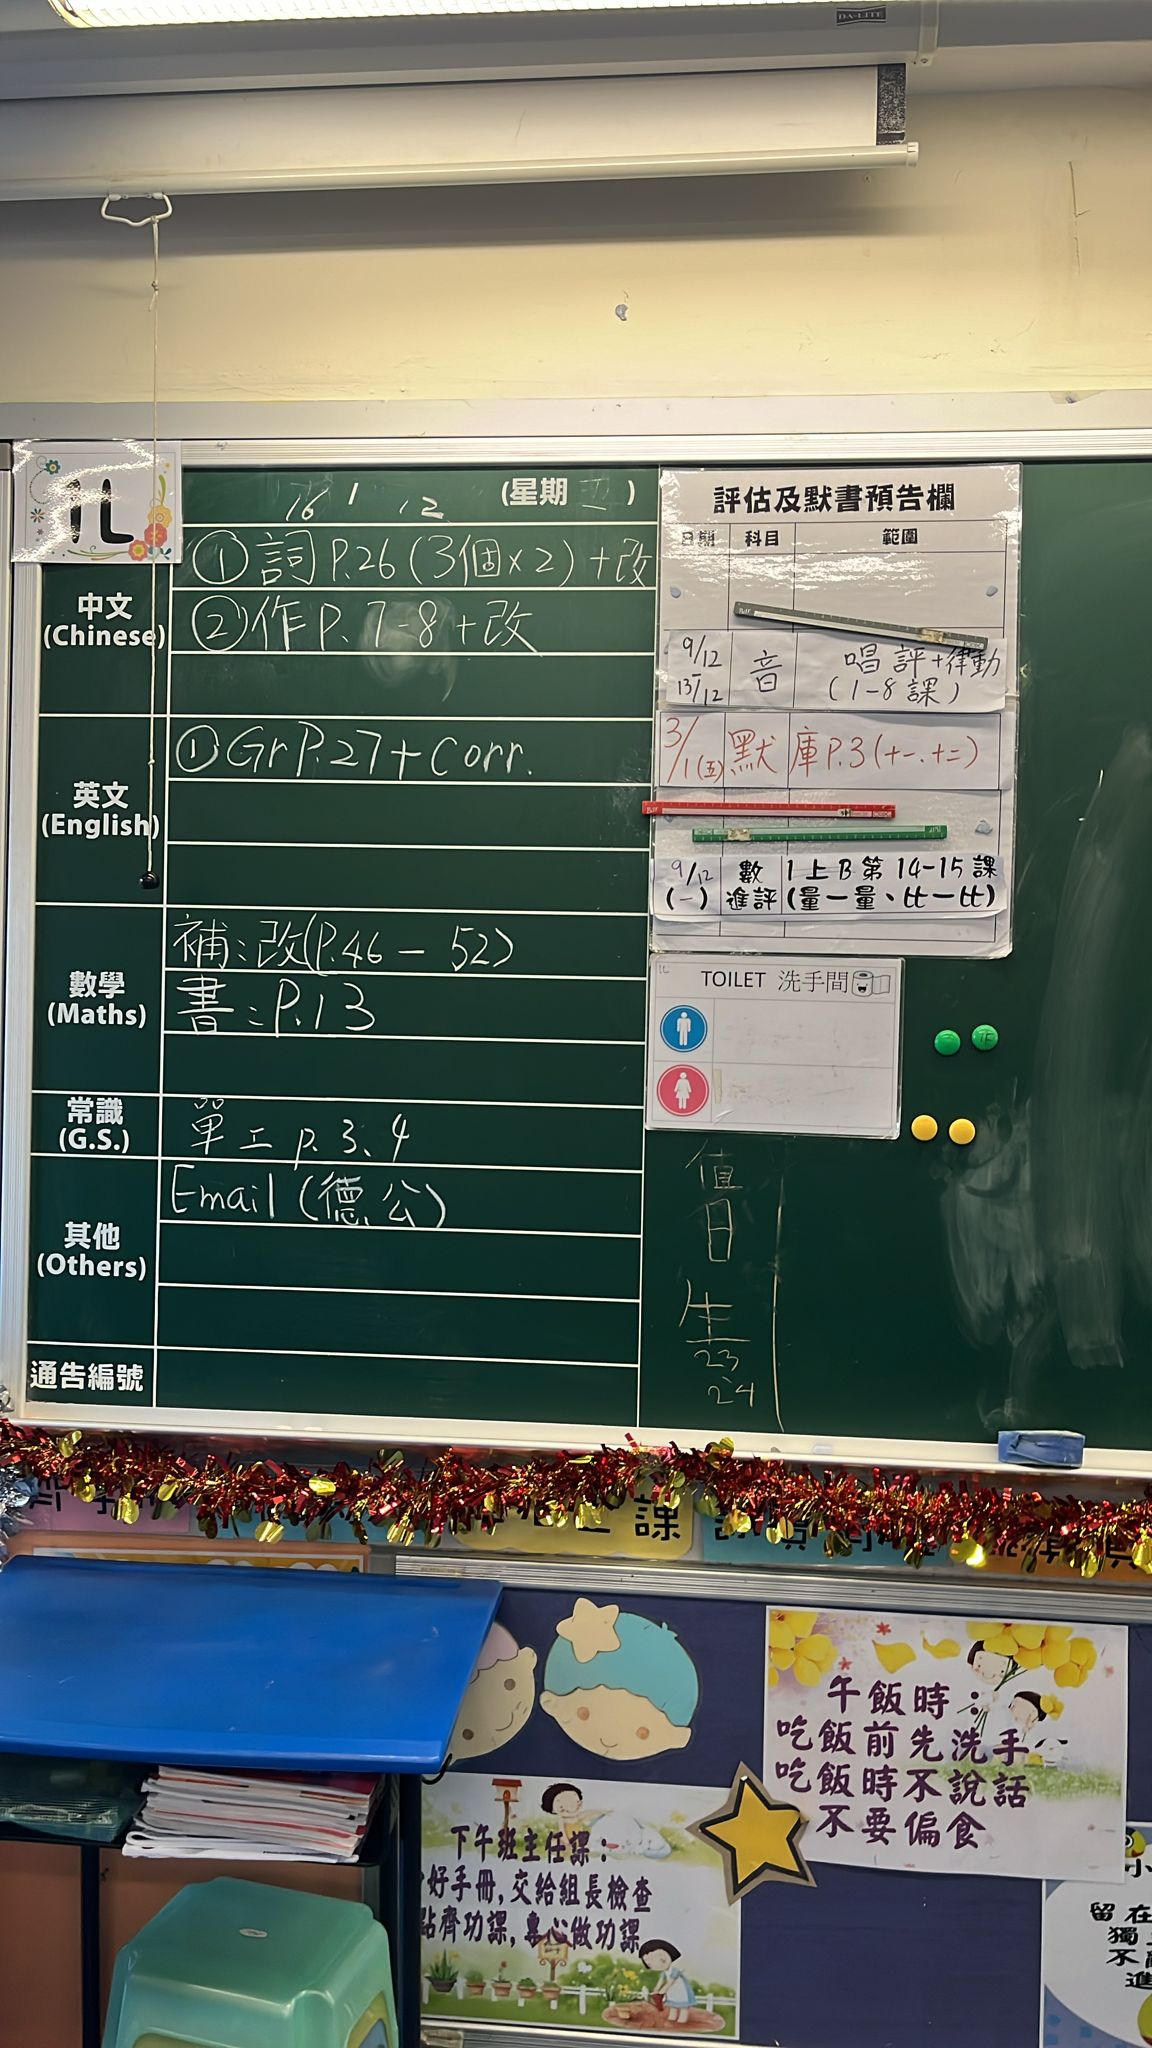 DA-LITE
1L
16 / 12 (星期 )
中文
(Chinese)
① 詞 P.26 (3個×2) + 改
② 作 P. 7-8 + 改
英文
(English)
① Gr P.27 + Corr.
數學
(Maths)
補:改(P.46 - 52)
書:P.13
常識
(G.S.)
單工 p. 3、4
其他
(Others)
Email (德.公)
通告編號
評估及默書預告欄
日期 科目 範圍
9/12 13/12 音 唱評+律動 (1-8課)
3/1(五) 默 庫P.3(+-.+=)
9/12 (一) 數 進評 1上B第14-15課 (量一量、比一比)
1L
TOILET 洗手間
值
日
生
23
24
課
午飯時:
吃飯前先洗手
吃飯時不說話
不要偏食
下午班主任課:
好手冊,交給組長檢查
點齊功課,專心做功課
小
留在
獨
不
進